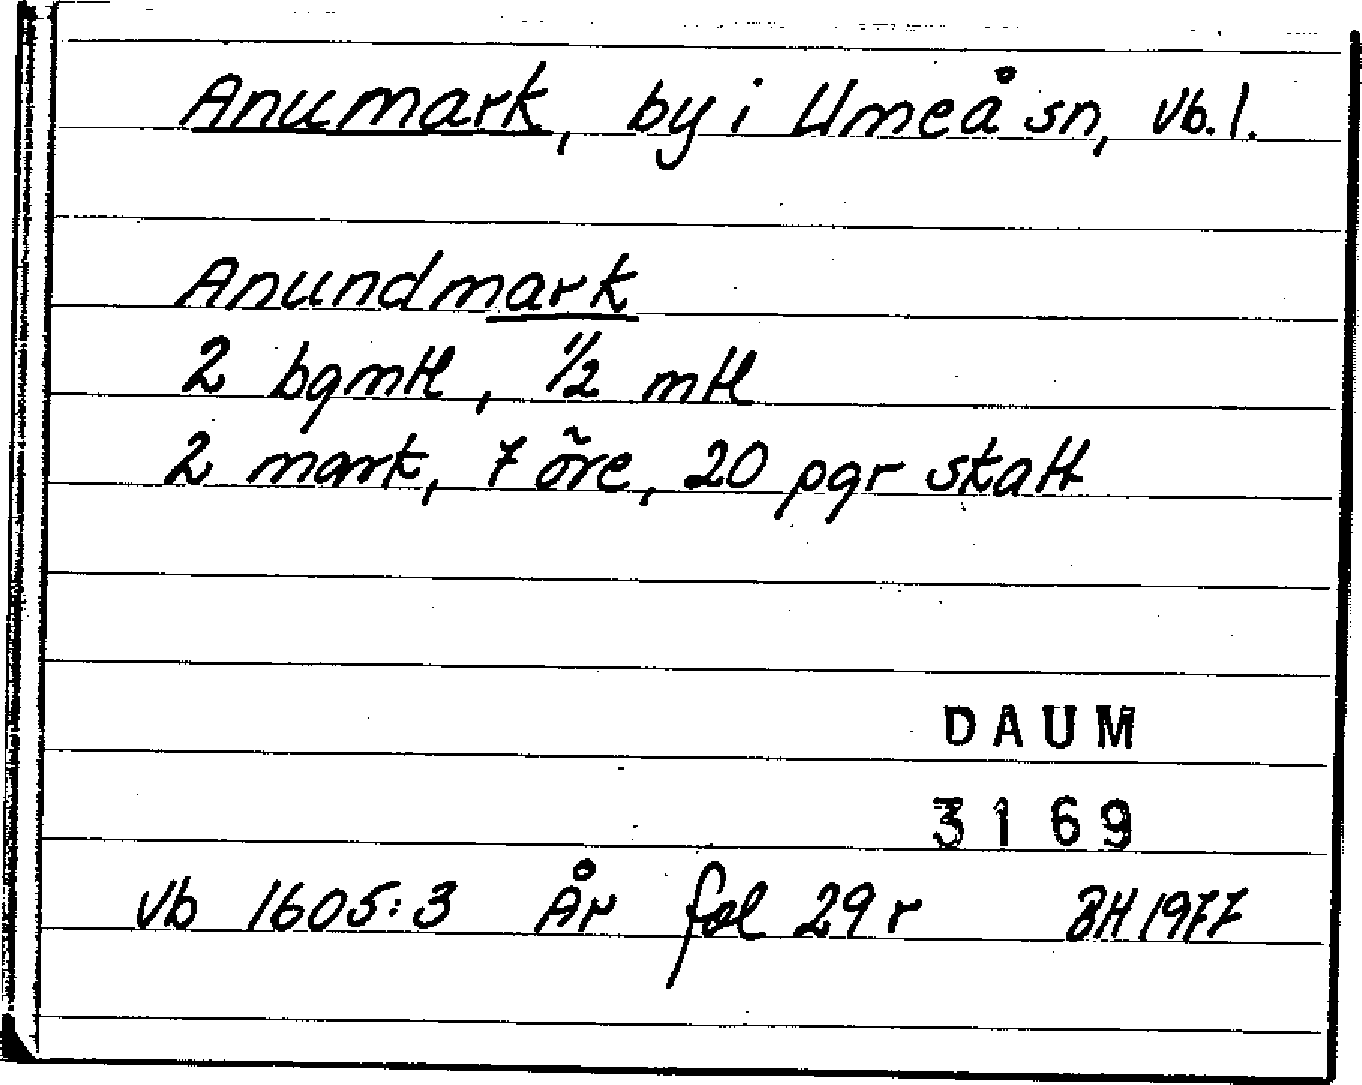 Anumark, by i Umeå sn, Vb. l.
Anundmark
2 bgmtl, ½ mtl
2 mark, 7 öre, 20 pgr skatt
DAUM
3169
Vb 1605:3 År fol 29 r BH 1977